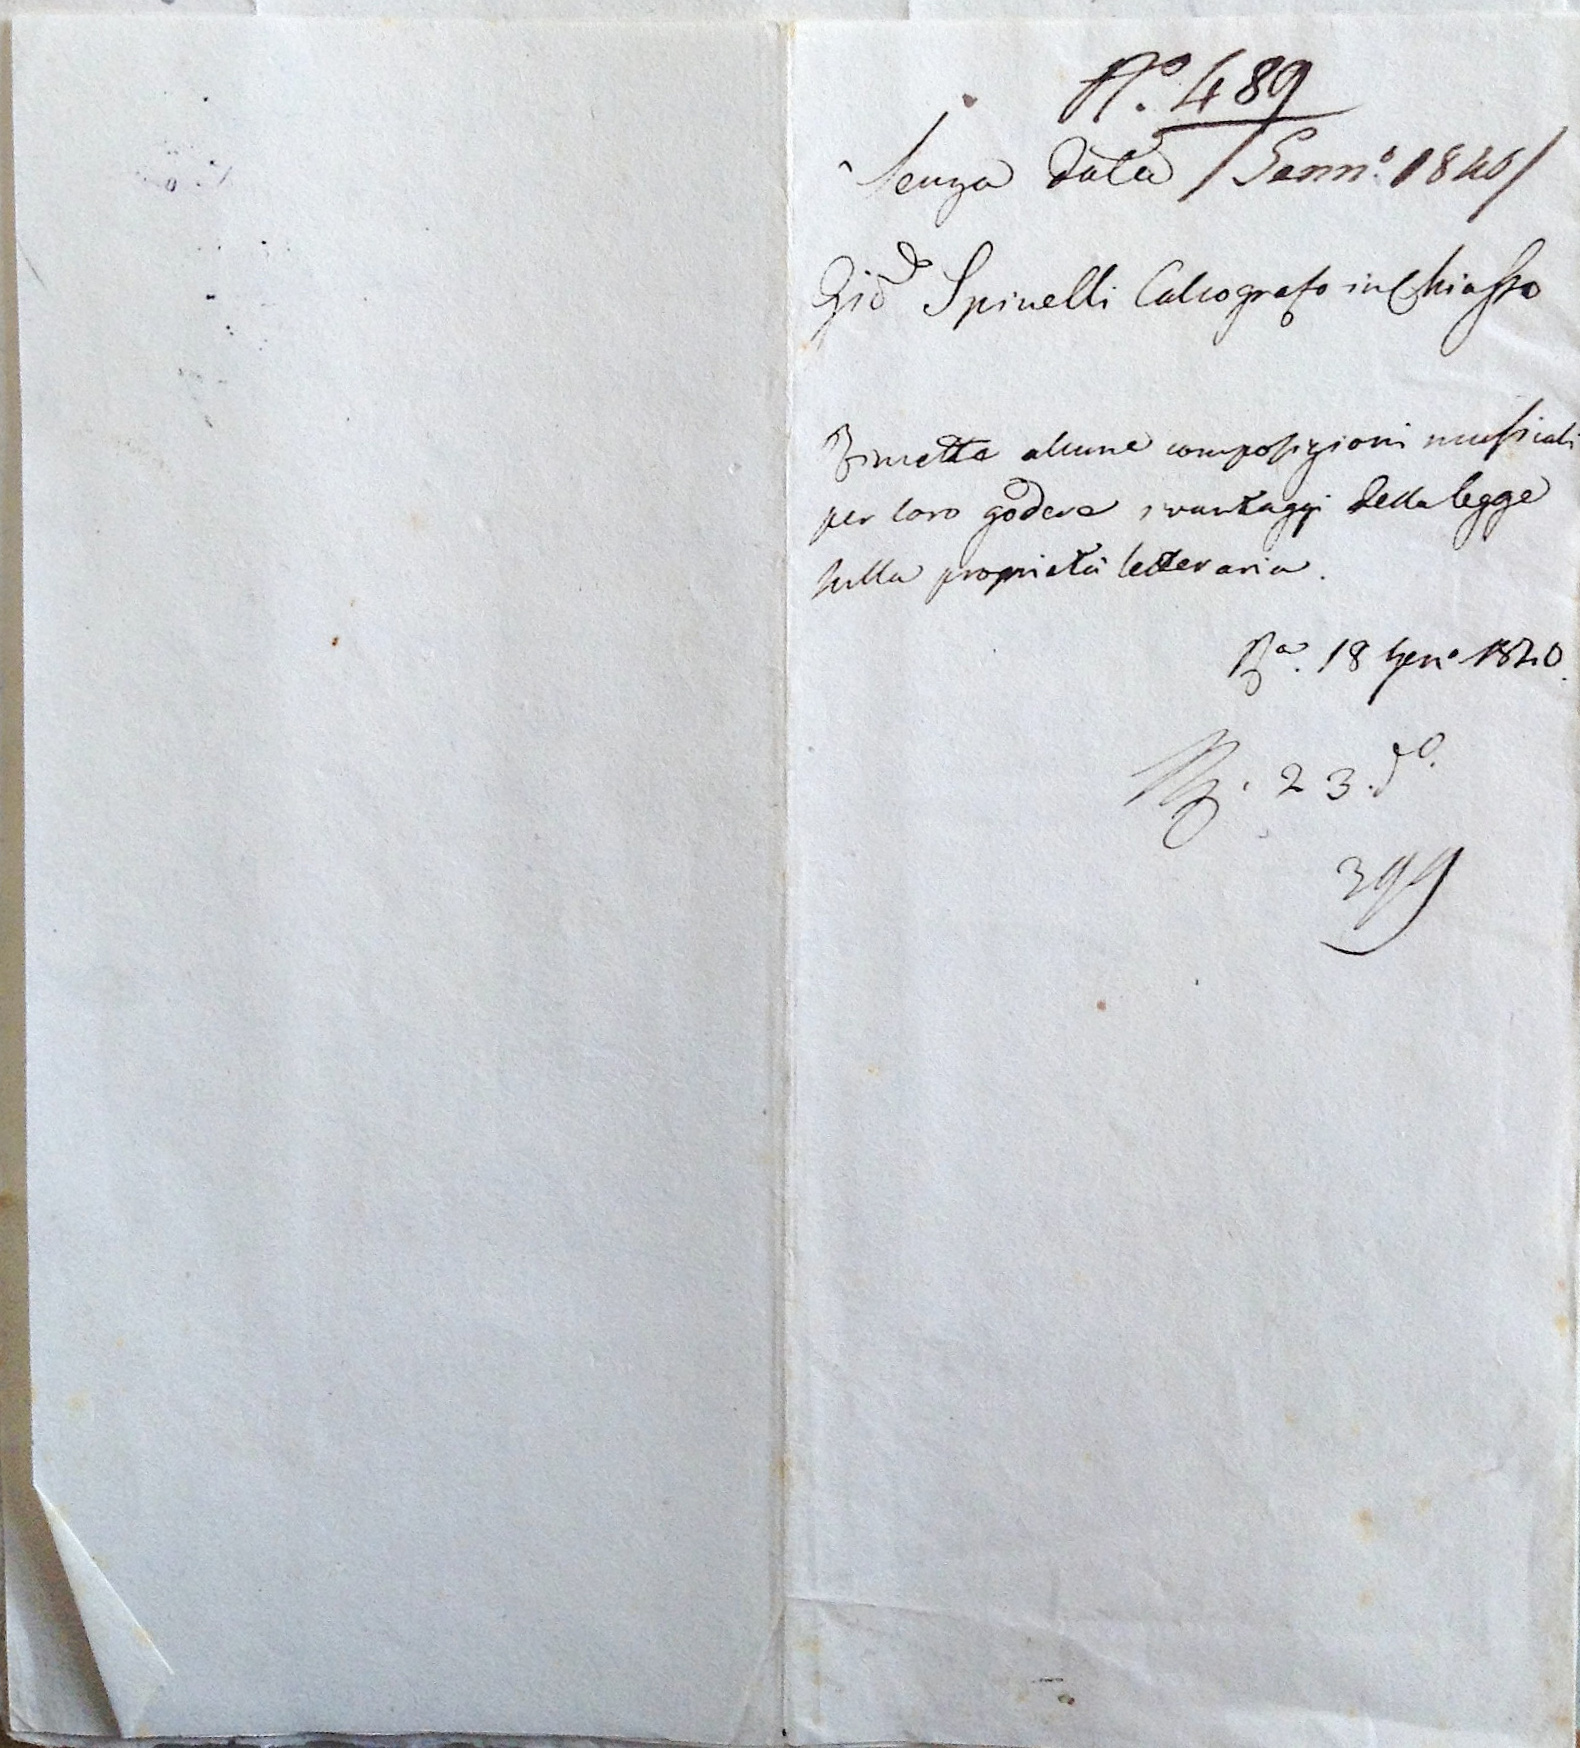 N.º 489
Senza data / Genn.º 1840 /
Gio Spinelli Calcografo in Chiasso
Rimette alcune composizioni musicali
per loro godere i vantaggi della legge
sulla proprietà letteraria.
Rª. 18 Genº 1840.
23. dº.
399